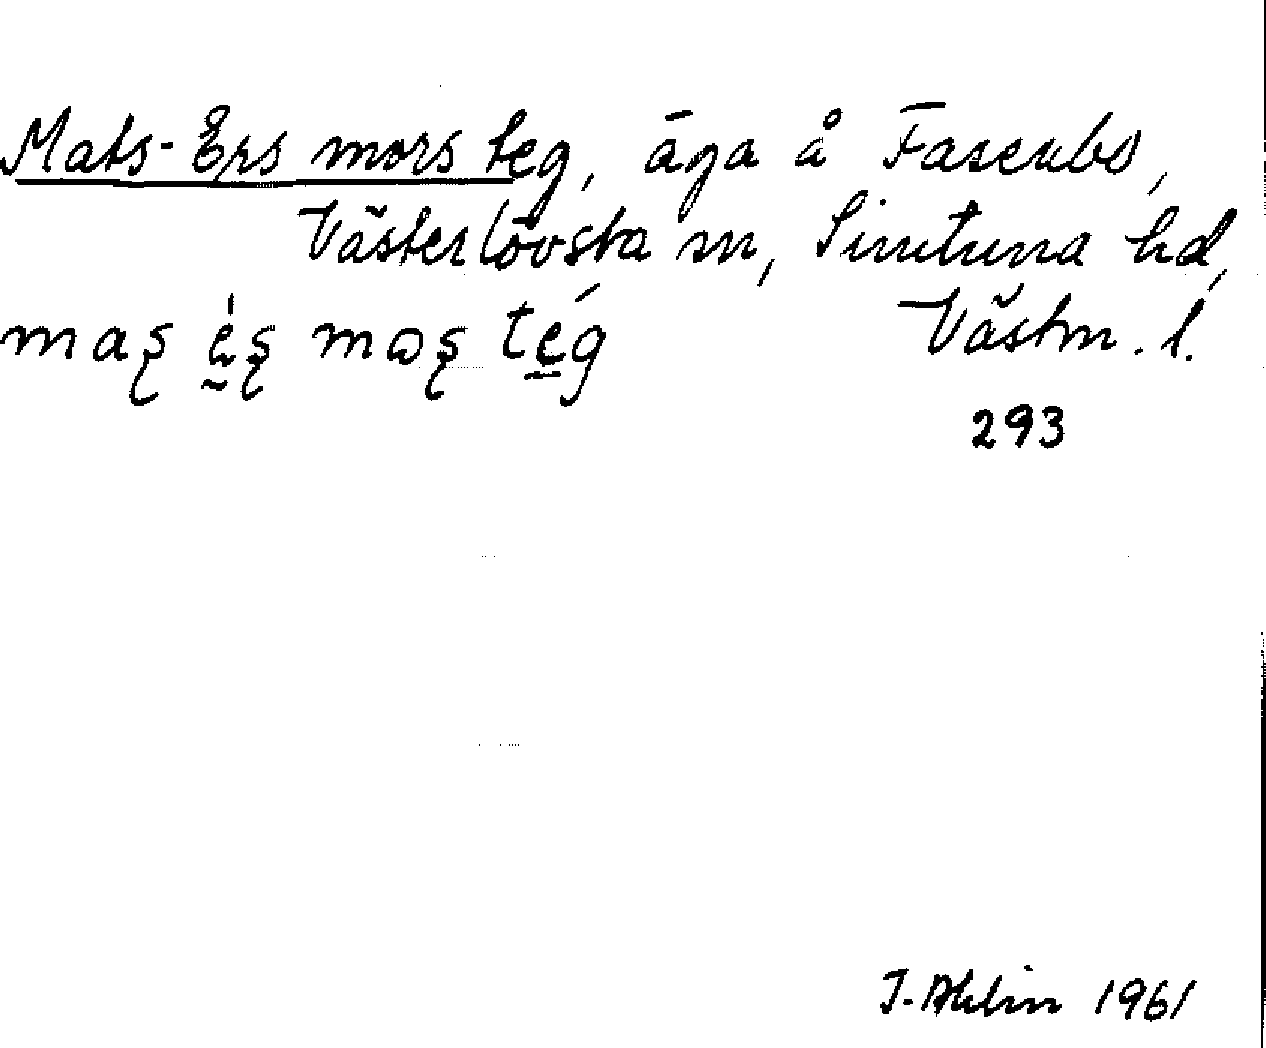 Mats-Ers mors teg, äga å Fasenbo,
Västerlövsta sn, Simtuna hd,
Västm. l.
293
I. Ahlin 1961